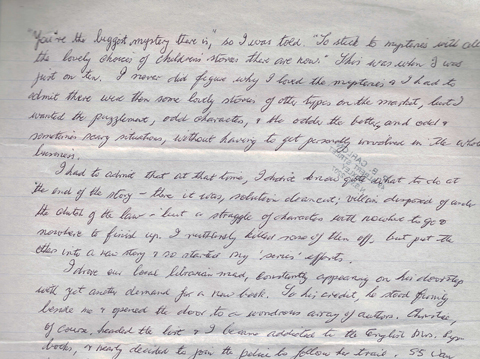 "You're the biggest mystery there is," so I was told. "To stick to mysteries with all
the lovely choices of children's stories there are now." This was when I was
just on ten. I never did figure why I loved the mysteries & I had to
admit there were then some lovely stories of other types on the market, but I
wanted the puzzlement, odd characters, & the odder the better, and odd &
sometimes scary situations, without having to get personally involved in the whole
business.
I had to admit that at that time, I didn't know quite what to do at
the end of the story - there it was, solution cleancut, villain disposed of under
the of the law - but a struggle of characters with nowhere to go &
nowhere to finish up. I ruthlessly killed some of them off, but put the
others into a new story & so started my 'series' efforts.
I drove our local librarian mad, constantly appearing on his doorstep
with yet another demand for a new book. To his credit, he stood firmly
beside me & opened the door to a wondrous array of authors. Christie,
of course, headed the list & I became addicted to the English Mrs.
books, & nearly decided to join the police to follow her trail. 55